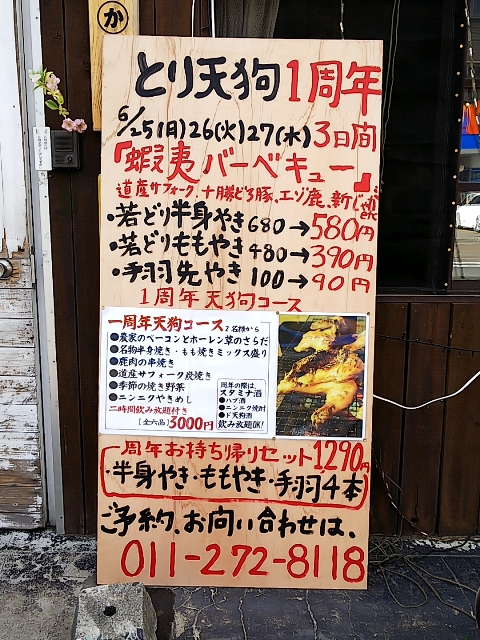 か
とり天狗1周年
6/25(月)26(火)27(水)3日間
「蝦夷バーベキュー」
道産サフォーク、十勝どろ豚、エゾ鹿、新じゃがetc
・若どり半身やき680→580円
・若どりももやき480→390円
・手羽先やき100→90円
1周年天狗コース
一周年天狗コース 2名様から
●農家のベーコンとホーレン草のさらだ
●名物半身焼き・もも焼きミックス盛り
●鹿肉の串焼き
●道産サフォーク炭焼き
●季節の焼き野菜
●ニンニクやきめし
二時間飲み放題付き
[全六品]3000円
周年の際は、
スタミナ酒
●ハブ酒
●ニンニク焼酎
●ド天狗酒
飲み放題OK!
周年お持ち帰りセット1290円
・半身やき・ももやき・手羽4本
ご予約、お問い合わせは、
011-272-8118